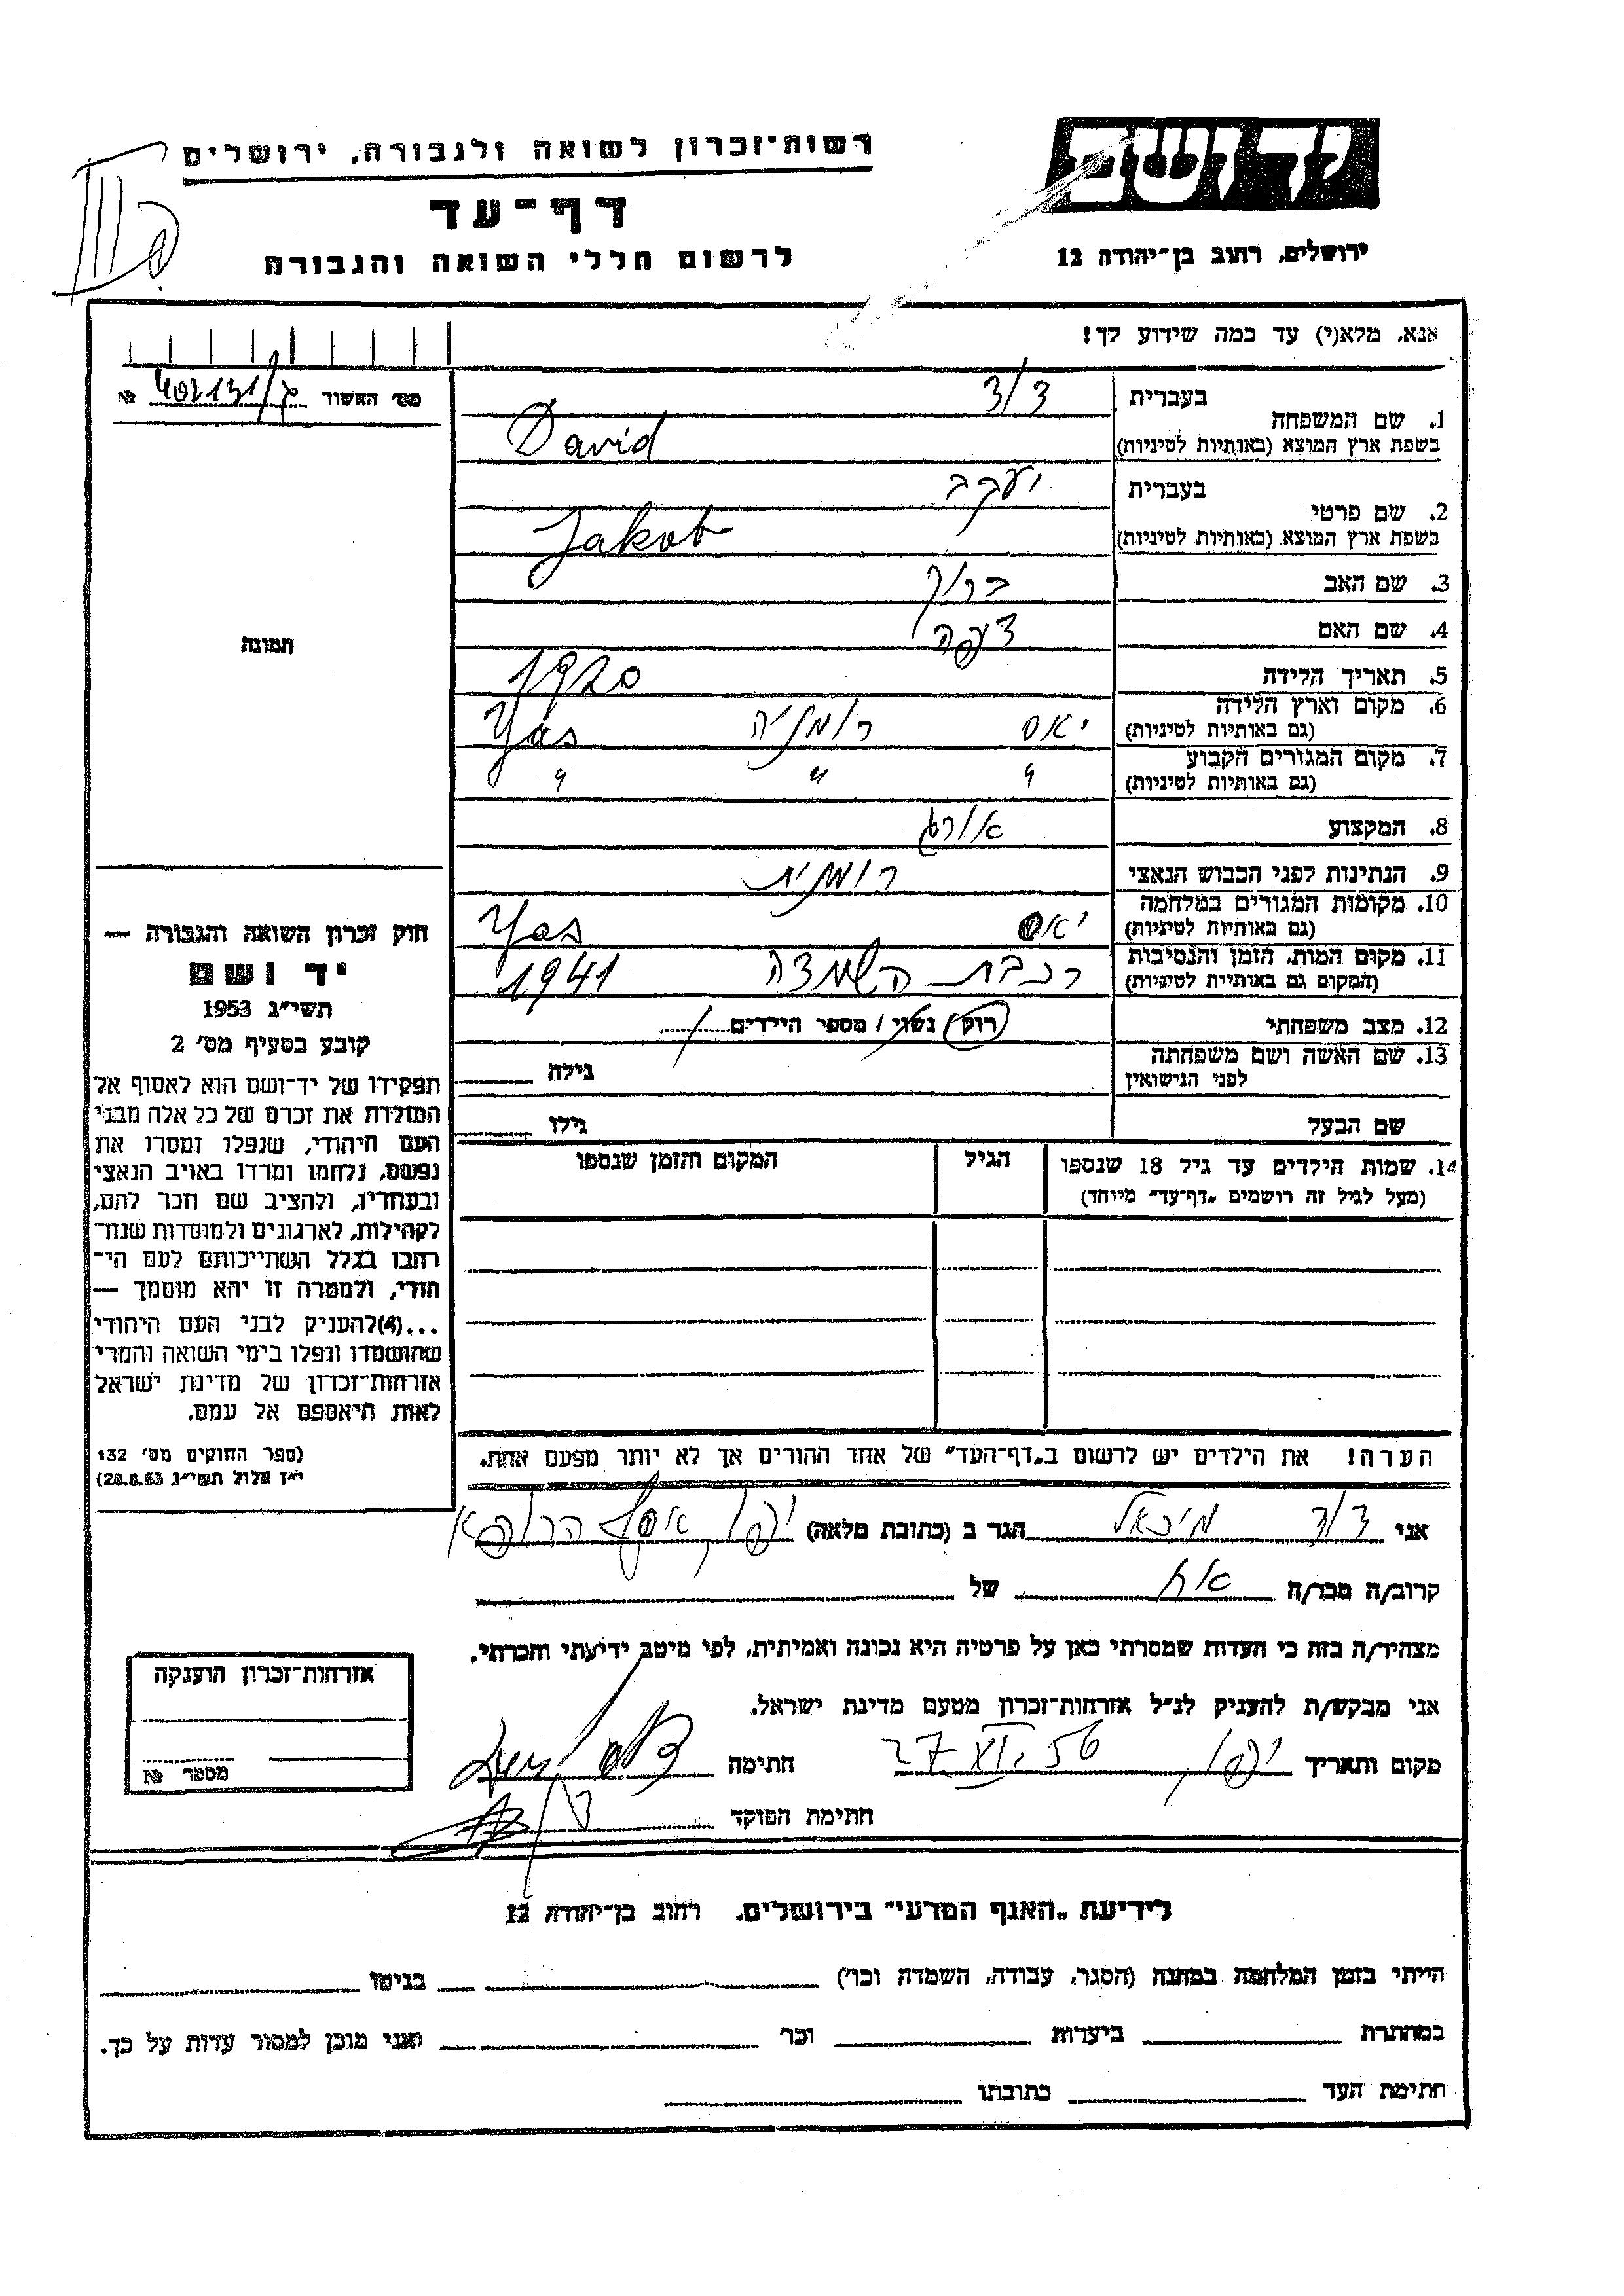 יד ושם
ירושלים, רחוב בן־יהודה 12
רשות־זכרון לשואה ולגבורה, ירושלים
דף־עד
לרשום חללי השואה והגבורה
אנא, מלא(י) עד כמה שידוע לך!
מס׳ האשור 402131/ №
1. שם המשפחה בעברית דוד
בשפת ארץ המוצא (באותיות לטיניות) David
2. שם פרטי בעברית יעקב
בשפת ארץ המוצא (באותיות לטיניות) Jakob
3. שם האב ברוך
4. שם האם
5. תאריך הלידה 1920
6. מקום וארץ הלידה (גם באותיות לטיניות) יאס רומניה Yas
7. מקום המגורים הקבוע (גם באותיות לטיניות) " " "
8. המקצוע אורג
9. הנתינות לפני הכבוש הנאצי רומנית
10. מקומות המגורים במלחמה (גם באותיות לטיניות) יאס Yas
11. מקום המות, הזמן והנסיבות (המקום גם באותיית לטיניות) רכבת השמדה 1941
12. מצב משפחתי רווק/ נשוי / מספר הילדים
13. שם האשה ושם משפחתה לפני הנישואין גילה
שם הבעל גילו
14. שמות הילדים עד גיל 18 שנספו (מעל לגיל זה רושמים „דף־עד״ מיוחד) הגיל המקום והזמן שנספו
תמונה
חוק זכרון השואה והגבורה —
יד ושם
תשי״ג 1953
קובע בסעיף מס׳ 2
תפקידו של יד־ושם הוא לאסוף אל
המולדת את זכרם של כל אלה מבני
העם היהודי, שנפלו ומסרו את
נפשם, נלחמו ומרדו באויב הנאצי
ובעוזריו, ולהציב שם וזכר להם,
לקהילות, לארגונים ולמוסדות שנח־
רבו בגלל השתייכותם לעם הי־
הודי, ולמטרה זו יהא מוסמך —
...(4)להעניק לבני העם היהודי
שהושמדו ונפלו בימי השואה והמרי
אזרחות־זכרון של מדינת ישראל
לאות היאספם אל עמם.
(ספר החוקים מס׳ 132
י״ז אלול תשי״ג 28.8.53)
הערה! את הילדים יש לרשום ב„דף־העד״ של אחד ההורים אך לא יותר מפעם אחת.
אני דוד מיכאל הגר ב (כתובת מלאה) יפו, אסף הרופא
קרוב/ה מכר/ה אח של
מצהיר/ה בזה כי העדות שמסרתי כאן על פרטיה היא נכונה ואמיתית, לפי מיטב ידיעתי והכרתי.
אני מבקש/ת להעניק לנ״ל אזרחות־זכרון מטעם מדינת ישראל.
מקום ותאריך יפו, 27 XI. 56 חתימה
חתימת הפוקד
אזרחות־זכרון הוענקה
מספר №
לידיעת „האגף המדעי״ בירושלים, רחוב בן־יהודה 12
הייתי בזמן המלחמה במחנה (הסגר, עבודה, השמדה וכו׳) בגיטו
במחתרת ביערות וכו׳ ואני מוכן למסור עדות על כך.
חתימת העד כתובתו